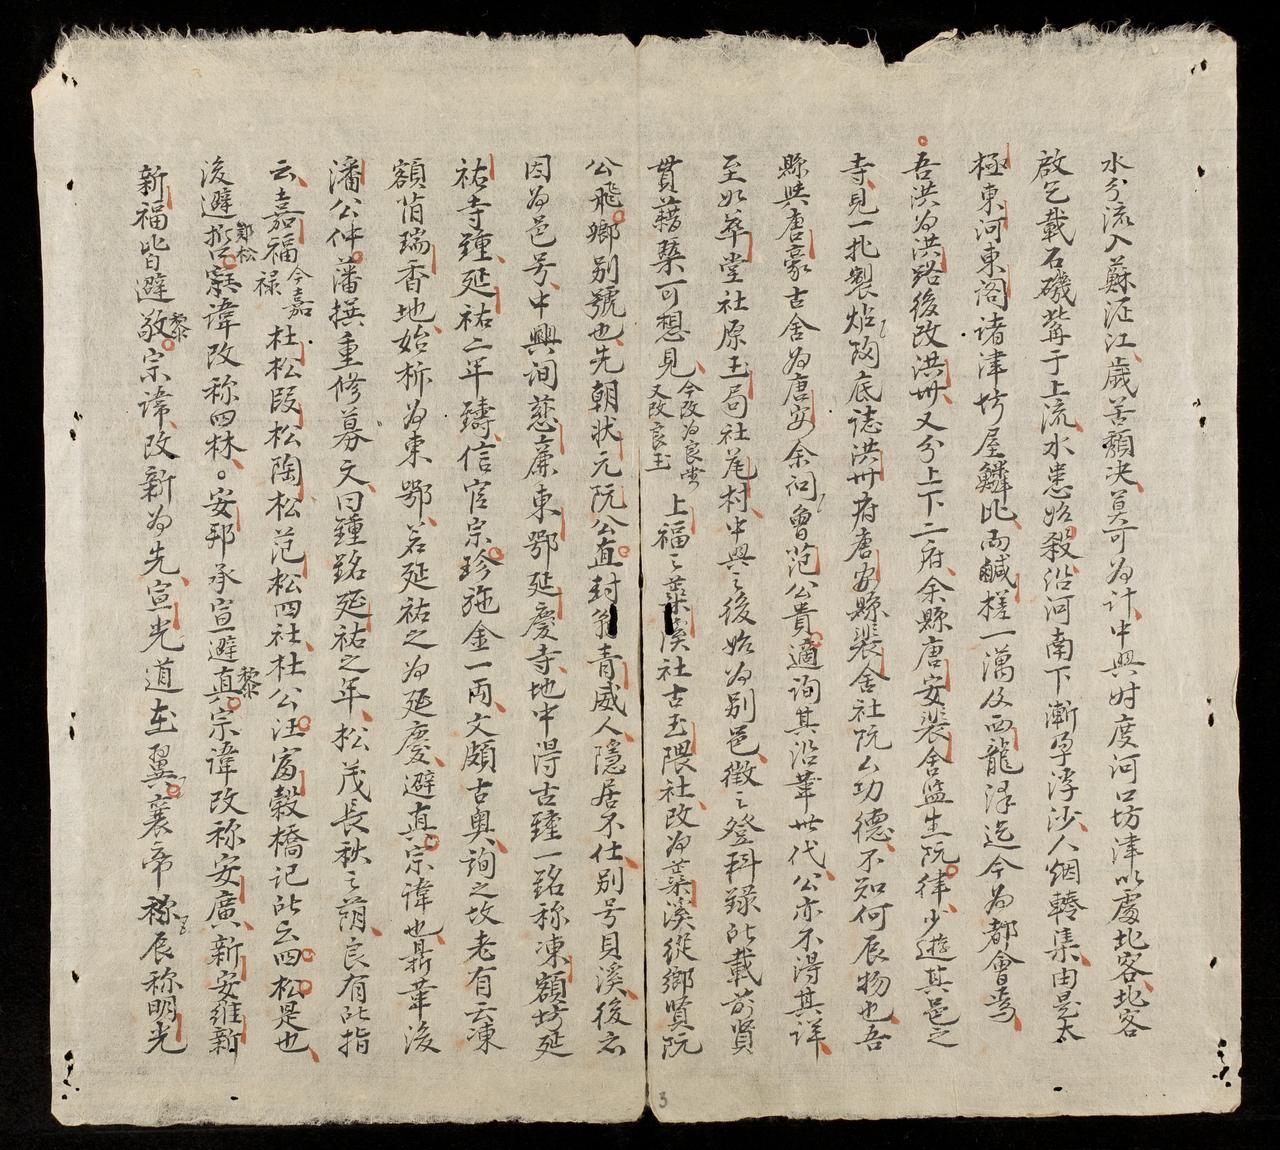 水分流入蘇沍江歲苦頹决莫可為計中興时度河口坊津以處北客北客
啟乞載石磯觜于上流水患始殺沿河南下漸孕浮沙人烟轉集由是太
極東河東阁诸津坊屋鱗比而鹹槎一濿及西龍泽迄今為都會焉
吾洪為洪路後改洪州又分上下二府余縣唐安裴舍监生阮律少遊其邑之
寺見一扎製炲陶底誌洪州府唐安縣裴舍社阮厶功德不知何辰物也吾
縣與唐豪古舍為唐安余祠會范公貴適詢其沿革世代公亦不得其詳
至如華堂社原玉局社尾村中興之後始為别邑徵之登科録所載前賢
貫藉槩可想見今改為良堂又改良玉上福之蘂溪社古玉隈社改為蘂溪從鄉賢阮
公飛鄉别號也先朝状元阮公直封翁青威人隱居不仕别号貝溪後亦
因為邑号中興洵慈廉東鄂延慶寺地中得古鍾一銘称凍額坊延
祐寺鍾延祐二年鑄信官宗珍施金一両文頗古奥詢之故老有云凍
額莦瑞香地始柝為東鄂若延祐之為延慶避真宗諱也鼎革後
潘公仲藩撰重修募文曰鍾銘延祐之年松茂長秋之蔭良有所指
云嘉福今嘉禄杜松段松陶松范松四社杜公汪富穀橋記所云四松是也
後避哲鄭松窰諱改称四林。安邦承宣避真黎宗諱改称安廣新安維新
新福皆避敬黎宗諱改新為先宣光道在翼襄帝称辰称明光
3